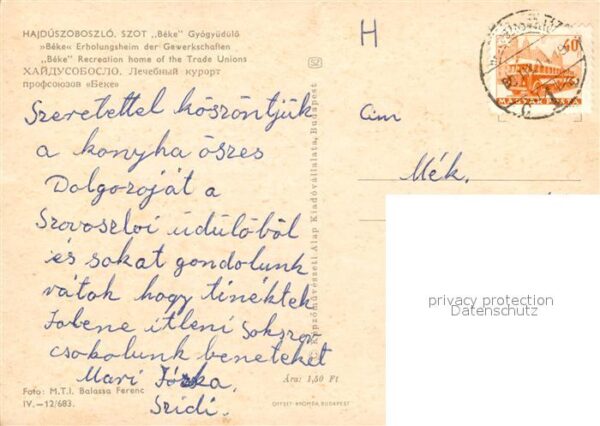 HAJDÚSZOBOSZLÓ. SZOT „Béke" Gyógyüdülő
»Béke« Erholungsheim der Gewerkschaften
„Béke" Recreation home of the Trade Unions
ХАЙДУСОБОСЛО. Лечебный курорт
профсоюзов «Беке»
Szeretettel köszöntjük
a konyha öszes
Dolgozoját a
üdülöböl
és sokat gondolunk
rátok hogy tinéktek
itleni Sokszor
csokolunk beneteket
Mari Józska,
Szidi.
Foto: M.T.I. Balassa Ferenc
IV.—12/683.
Ára: 1,50 Ft
© Képzőművészeti Alap Kiadóvállalata, Budapest
OFFSET-NYOMDA BUDAPEST
H
40
MAGYAR POSTA
Cim
Mék.
privacy protection
Datenschutz